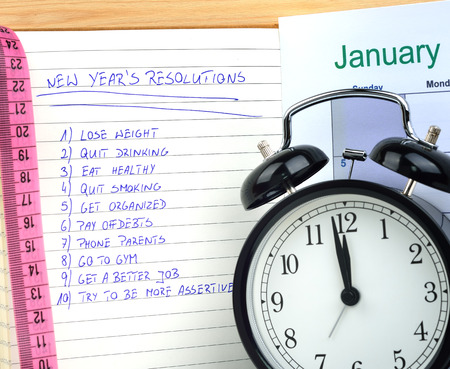 January
Sunday
Mond
5
NEW YEAR'S RESOLUTIONS
1) LOSE WEIGHT
2) QUIT DRINKING
3) EAT HEALTHY
4) QUIT SMOKING
5) GET ORGANIZED
6) PAY OF DEBTS
7) PHONE PARENTS
8) GO TO GYM
9) GET A BETTER JOB
10) TRY TO BE MORE ASSERTIVE
24
23
22
21
20
19
18
17
16
15
14
13
12
11
10
11 12 1
10 2
9 3
8 4